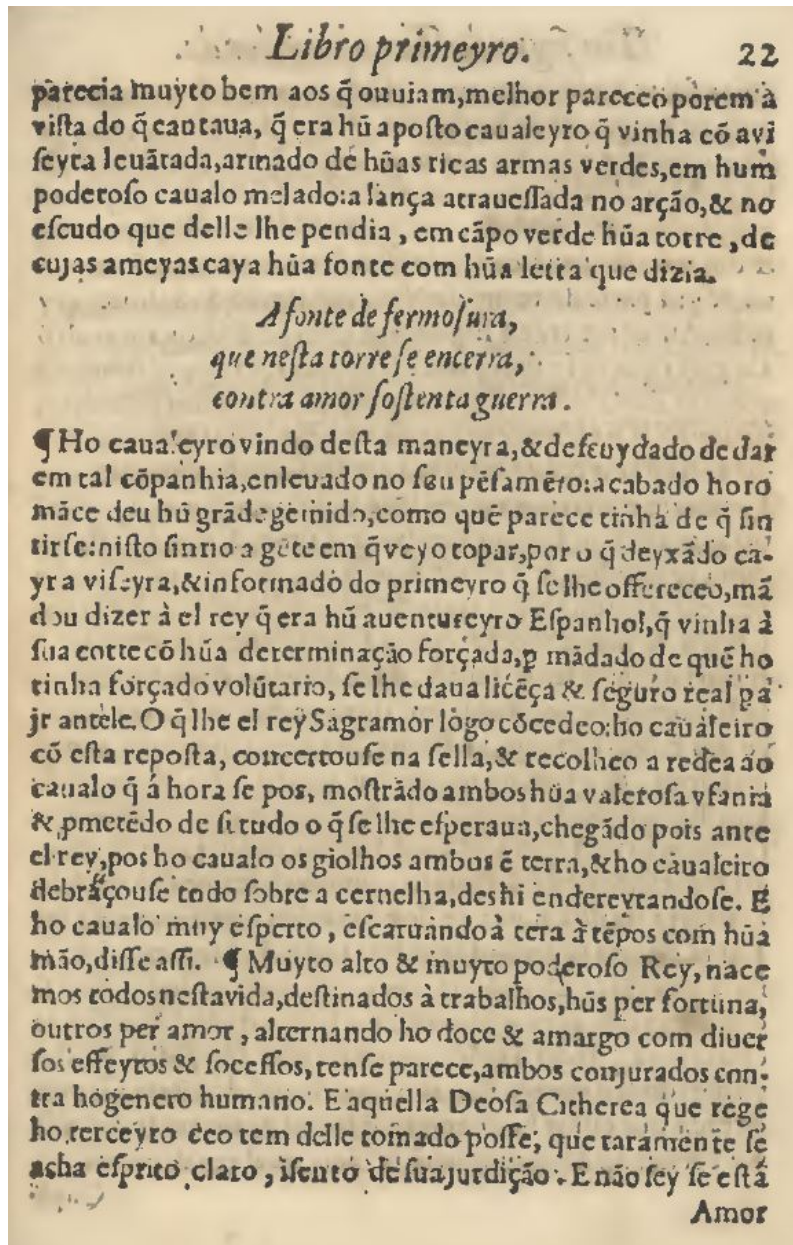 Libro primeyro. 22
parecia muyto bem aos q̃ ouuiam, melhor pareceo porem à
viſta do q̃ cantaua, q̃ era hũ apoſto caualeyro q̃ vinha cõ avi
ſeyra leuãtada, armado de hũas ricas armas verdes, em hum
poderoſo caualo melado: a lança atraueſſada no arção, & no
eſcudo que delle lhe pendia, em cãpo verde hũa torre, de
cujas ameyas caya hũa fonte com hũa letra que dizia.
A fonte de fermoſura,
que neſta torre ſe encerra,
contra amor ſoſtenta guerra.
¶ Ho caualeyro vindo deſta maneyra, & deſcuydado de dar
em tal cõpanhia, enleuado no ſeu pẽſamẽto: acabado ho ro
mãce deu hũ grãde gemido, como quẽ parece tinha de q̃ ſin
tirſe: niſto ſintio a gẽte em q̃ veyo topar, por o q̃ deyxãdo ca-
yr a viſeyra, & informado do primeyro q̃ ſe lhe offereceo, mã
dou dizer à el rey q̃ era hũ auentureyro Eſpanhol, q̃ vinha à
ſua corte cõ hũa determinação forçada, p mãdado de quẽ ho
tinha forçado volũtario, ſe lhe daua licẽça & ſeguro real pa
jr antele. O q̃ lhe el rey Sagramor lògo cõcedeo: ho caualeiro
cõ eſta repoſta, concertouſe na ſella, & recolheo a redea ao
caualo q̃ á hora ſe pos, moſtrãdo ambos hũa valeroſa vfania
& pmetẽdo de ſi tudo o q̃ ſe lhe eſperaua, chegãdo pois ante
el rey, pos ho caualo os giolhos ambos ẽ terra, & ho caualeiro
debraçouſe todo ſobre a cernelha, deshi endereytandoſe. E
ho caualo muy eſperto, eſcaruando à tera à tẽpos com hũa
mão, diſſe aſſi. ¶ Muyto alto & muyto poderoſo Rey, nace
mos todos neſta vida, deſtinados à trabalhos, hũs per fortuna,
outros per amor, alternando ho doce & amargo com diuer
ſos effeytos & ſoceſſos, tenſe parece, ambos conjurados con-
tra ho genero humano. E aquella Deoſa Citherea que rege
ho terceyro ceo tem delle tomado poſſe, que raramente ſe
acha eſprito claro, iſento de ſua jurdição. E não ſey ſe eſtá
Amor